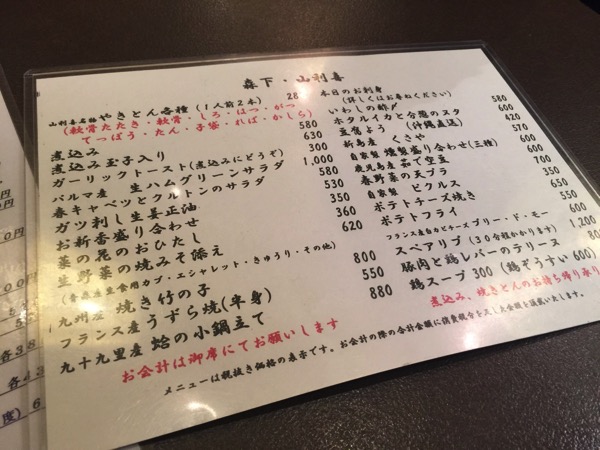 森下・山利喜
山利喜名物 やきとん各種(1人前2本) 28
(軟骨たたき・軟骨・しろ・はつ・がつ
てっぽう・たん・子袋・ればー・かしら)
煮込み 580
煮込み玉子入り 630
ガーリックトースト(煮込みにどうぞ) 300
パルマ産 生ハムグリーンサラダ 1,000
春キャベツとクルトンのサラダ 580
ガツ刺し生姜正油 530
お新香盛り合わせ 350
菜の花のおひたし 360
生野菜の焼みそ添え 620
(青森産生食用カブ・エシャレット・きゅうり・その他)
九州産 焼き竹の子 800
フランス産うずら焼(半身) 550
九十九里産 蛤の小鍋立て 880
お会計は御席にてお願いします
本日のお刺身
(詳しくはお尋ねください)
いわしの酢〆 580
ホタルイカと分葱のヌタ 600
豆腐よう (沖縄直送) 420
新島産 くさや 570
自家製 燻製盛り合わせ(三種)
鹿児島産 茹で空豆 600
春野菜の天プラ 700
自家製 ピクルス 350
ポテトチーズ焼き 550
ポテトフライ 500
フランス産白カビチーズ ブリー・ド・モー 600
スペアリブ (30分程かかります) 1,200
豚肉と鶏レバーのテリーヌ
鶏スープ 300 (鶏ぞうすい 600)
煮込み、焼きとんのお持ち帰り承り
メニューは税抜き価格の表示です。お会計の際の合計金額に消費税分を入した金額を頂戴いたします。